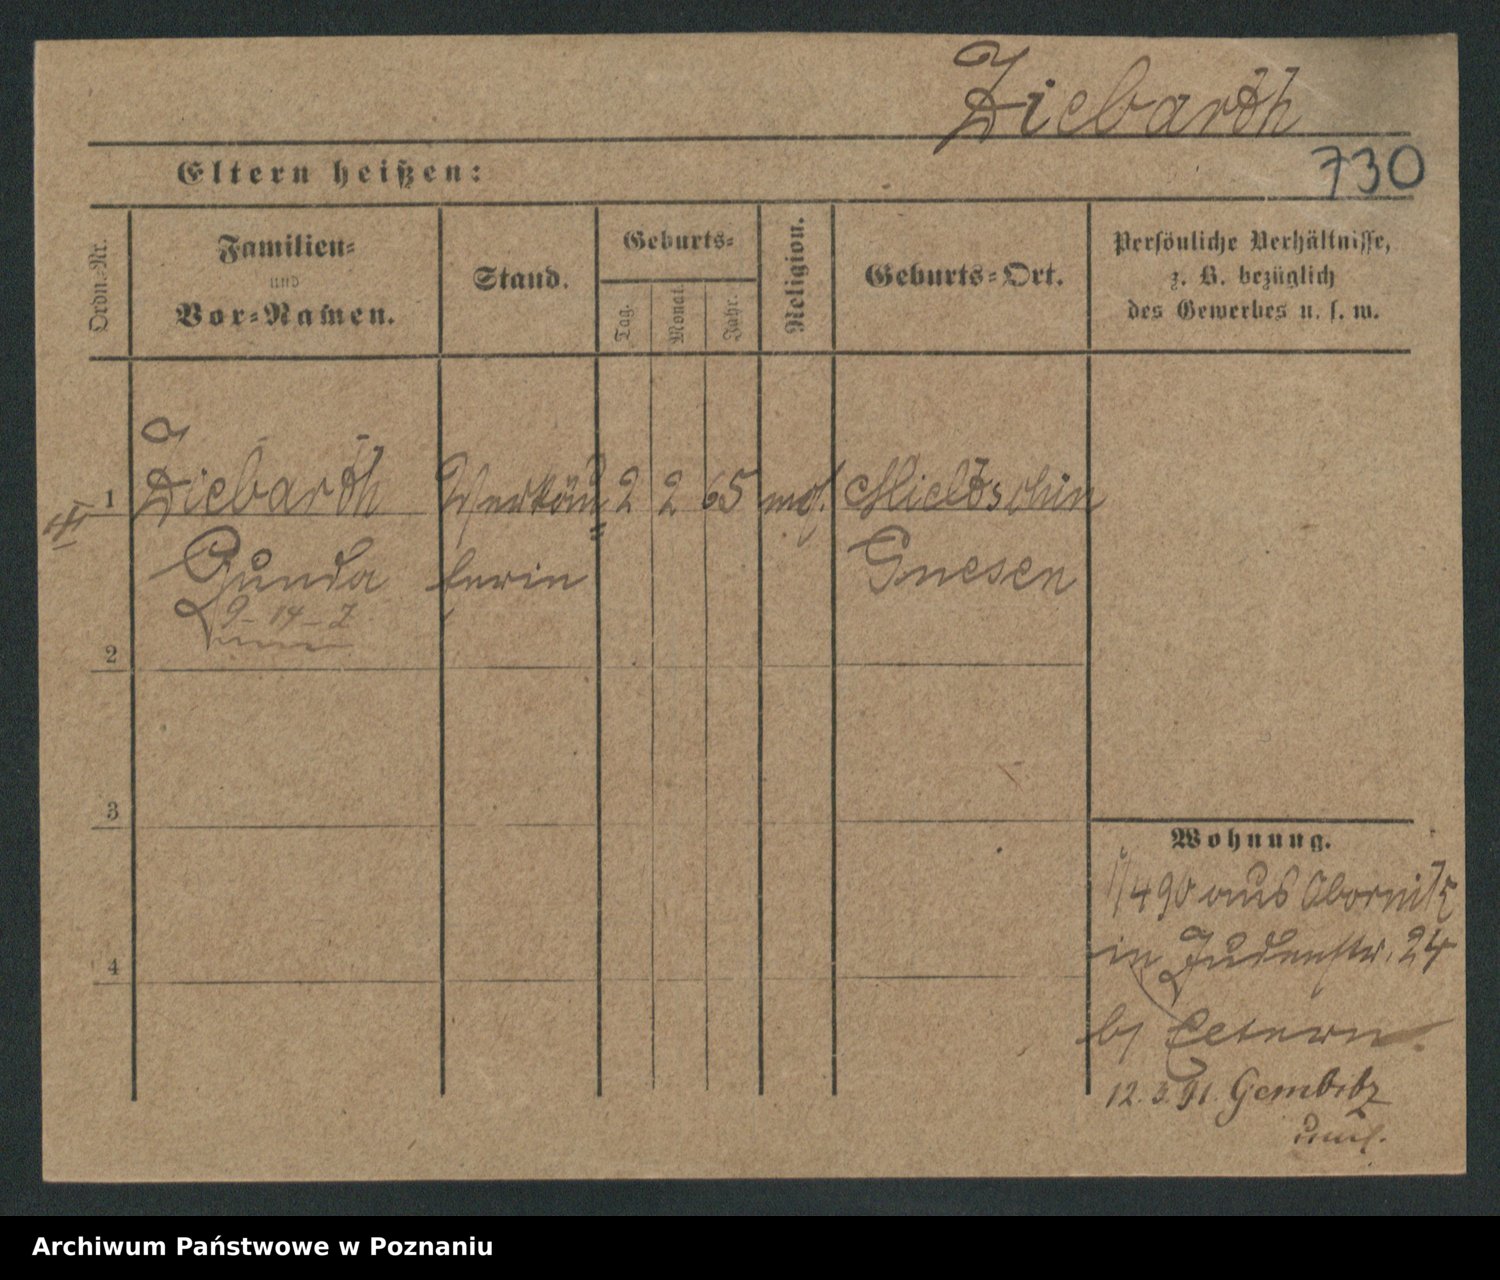 Ziebarth
730
Eltern heißen:
Ordn.-Nr.
Familien-
und
Vor-Namen.
Stand.
Geburts-
Tag.
Monat.
Jahr.
Religion.
Geburts-Ort.
Persönliche Verhältnisse,
z. B. bezüglich
des Gewerbes u. s. w.
1 Ziebarth Verkäu= 2 2 65 mos. Mieltschin
Gunda ferin Gnesen
9-14-7
2
3
4
Wohnung.
1/4 90 aus Obornik
in Judenstr. 24
b/ Eltern
12.3.91. Gembitz
Archiwum Państwowe w Poznaniu